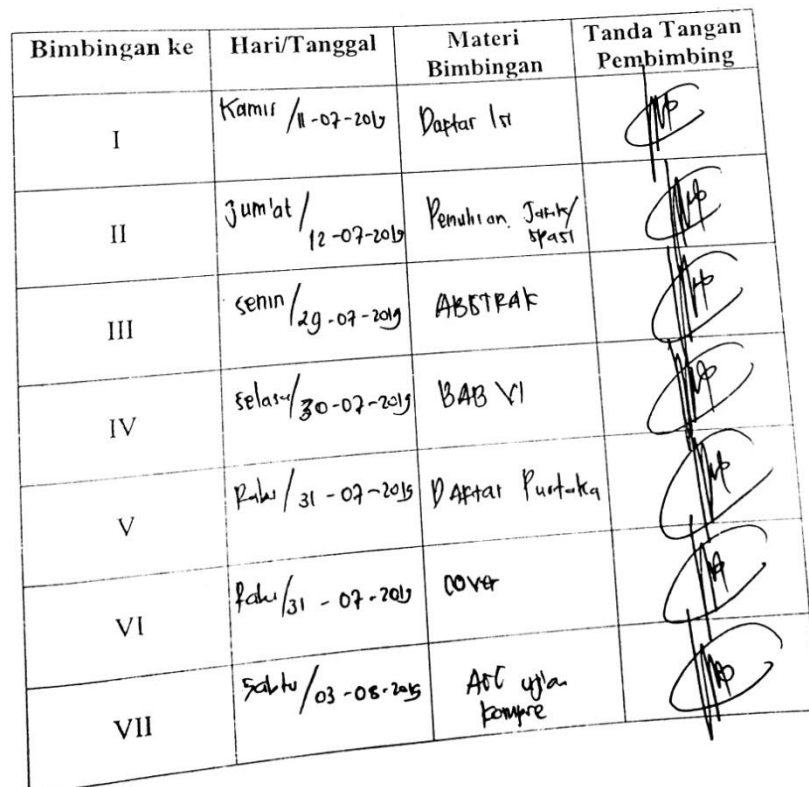 Bimbingan ke Hari/Tanggal Materi Bimbingan Tanda Tangan Pembimbing
I Kamis / 11-07-2019 Daftar Isi
II Jum'at / 12-07-2019 Penulisan Jarak/ spasi
III Senin / 29-07-2019 ABSTRAK
IV Selasa / 30-07-2019 BAB VI
V Rabu / 31-07-2019 DAftar Pustaka
VI Rabu / 31-07-2019 cover
VII Sabtu / 03-08-2019 ACC ujian kompre